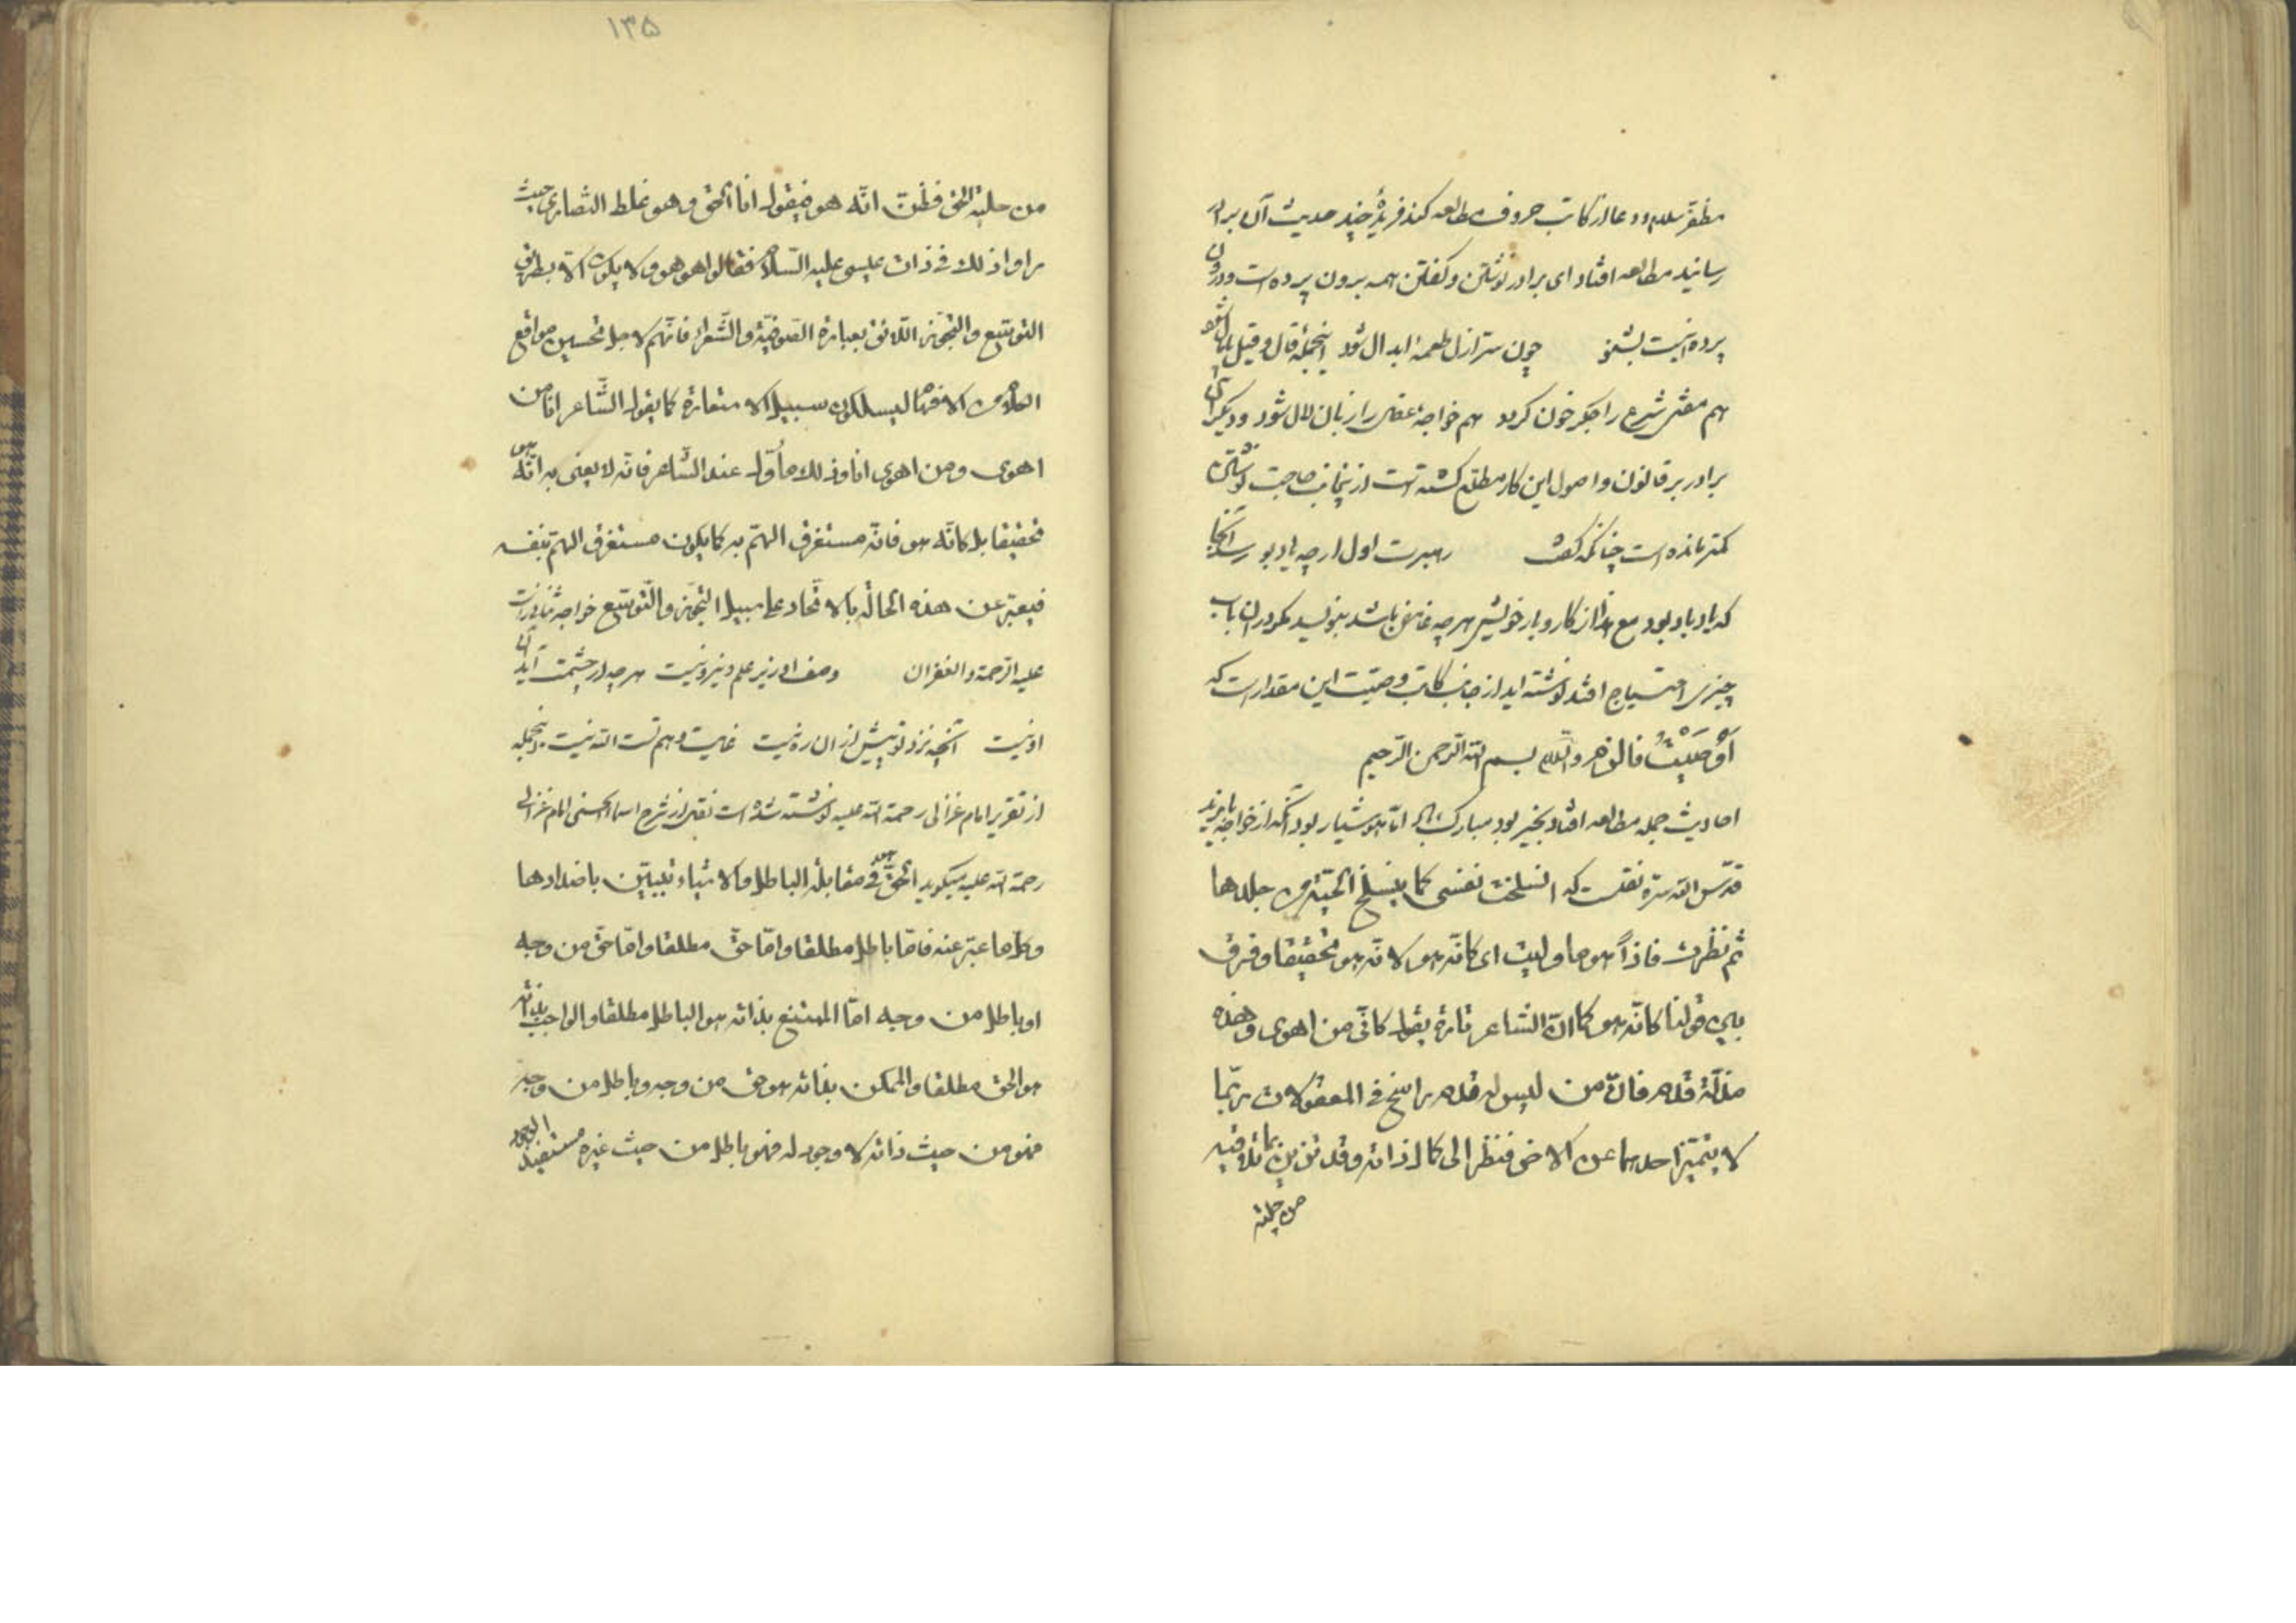 مظفر سلام و دعا از کاتب حروف مطالعه کند فریدهٔ چند حدیث آن برادر
رسانید مطالعه افتاد ای برادر نوشتن و کفتن همه برون پرده است و درون
پرده نیست بشنو چون ستر ازل طعمهٔ ابدال شود اینجمله قال و قیل پامال شود
هم مفتی شرع را جکر خون کردد هم خواجهٔ عقل را زبان لال شود و دیکر آن
برادر بر قانون و اصول این کار مطلع کشته است ازینجانب حاجت نوشتن
کمتر مانده است چنانکه کفت رهبرت اول ار چه یاد بود رسد آنجا
که یاد باد بود مع هذا از کار و بار خویش هر چه غامض باشد بنویسد مکر در ان باب
چیزی احتیاج افتد نوشته اید از جانب کاتب وصیت این مقدار است که
أوصَیتُ فالزم والسلم بسم الله الرحمن الرحیم
احادیث جمله مطالعه افتاد بخیر بود مبارک باد اما هوشیار بود آنکه از خواجه بایزید
قدس الله سره نقلست که انسلخت نفسی کما ینسلخ الحیة من جلدها
ثم نظرت فاذاً هو ما ولیت ای کانه هو لا انه هو تحقیقا و فرق
بین قولنا کانه هو کما ان الشاعر تارة یقول کانی من اهوی وهذه
مذلة قدم فان من لیس له قدم راسخ فی المعقولات ربّما
لا یتمیز احدهما عن الاخر فنظر الی کمال ذاته وقد تزین بما تلا فیه
من حلیة
۱۳۵
من حلیة الحق فظن انّه هو فیقول انا الحق وهو غلط النصاری حیث
راوا ذلك فی ذات عیسی علیه السلام فقالوا هو هو ولا یکون الا بطریق
التوسّع والتجوّز اللائق بعبارة الصّوفیّة والشّعراء فانّهم لاجل تحسین مواقع
الکلام من الافهام لیسلکون سبیل الاستعارة کما یقول الشّاعر انا من
اهوی ومن اهوی انا وذلك مأوّل عند الشاعر فانّه لا یعنی به انّه هو
تحقیقا بل کانّه هو فانّه مستغرق الهمّ به کما یکون مستغرق الهمّ بنفسه
فیعبّر عن هذه الحالة بالاتّحاد علی سبیل التجوّز والتّوسّع خواجه ثنائی راست
علیه الرحمة والغفران وصف او زیر علم و نیرو نیست هر چه در چشمت آید آن
او نیست آنچه نزد تو پیش از ان ره نیست غایت وهم تست الله نیست اینجمله
از تقریر امام غزالی رحمة الله علیه نوشته شده است نقل از شرح اسماء الحسنی امام غزالی
رحمة الله علیه میکوید الحقّ هو فی مقابلة الباطل والاشیاء تتبیّن باضدادها
وکلّ ما عبّر عنه فامّا باطل مطلقا وامّا حقّ مطلقا وامّا حقّ من وجه
او باطل من وجه امّا الممتنع بذاته هو الباطل مطلقا والواجب بذاته
هو الحق مطلقا والممکن بذاته هو حق من وجه وباطل من وجه
فهو من حیث ذاته لا وجود له فهو باطل من حیث غیره مستفید الوجود